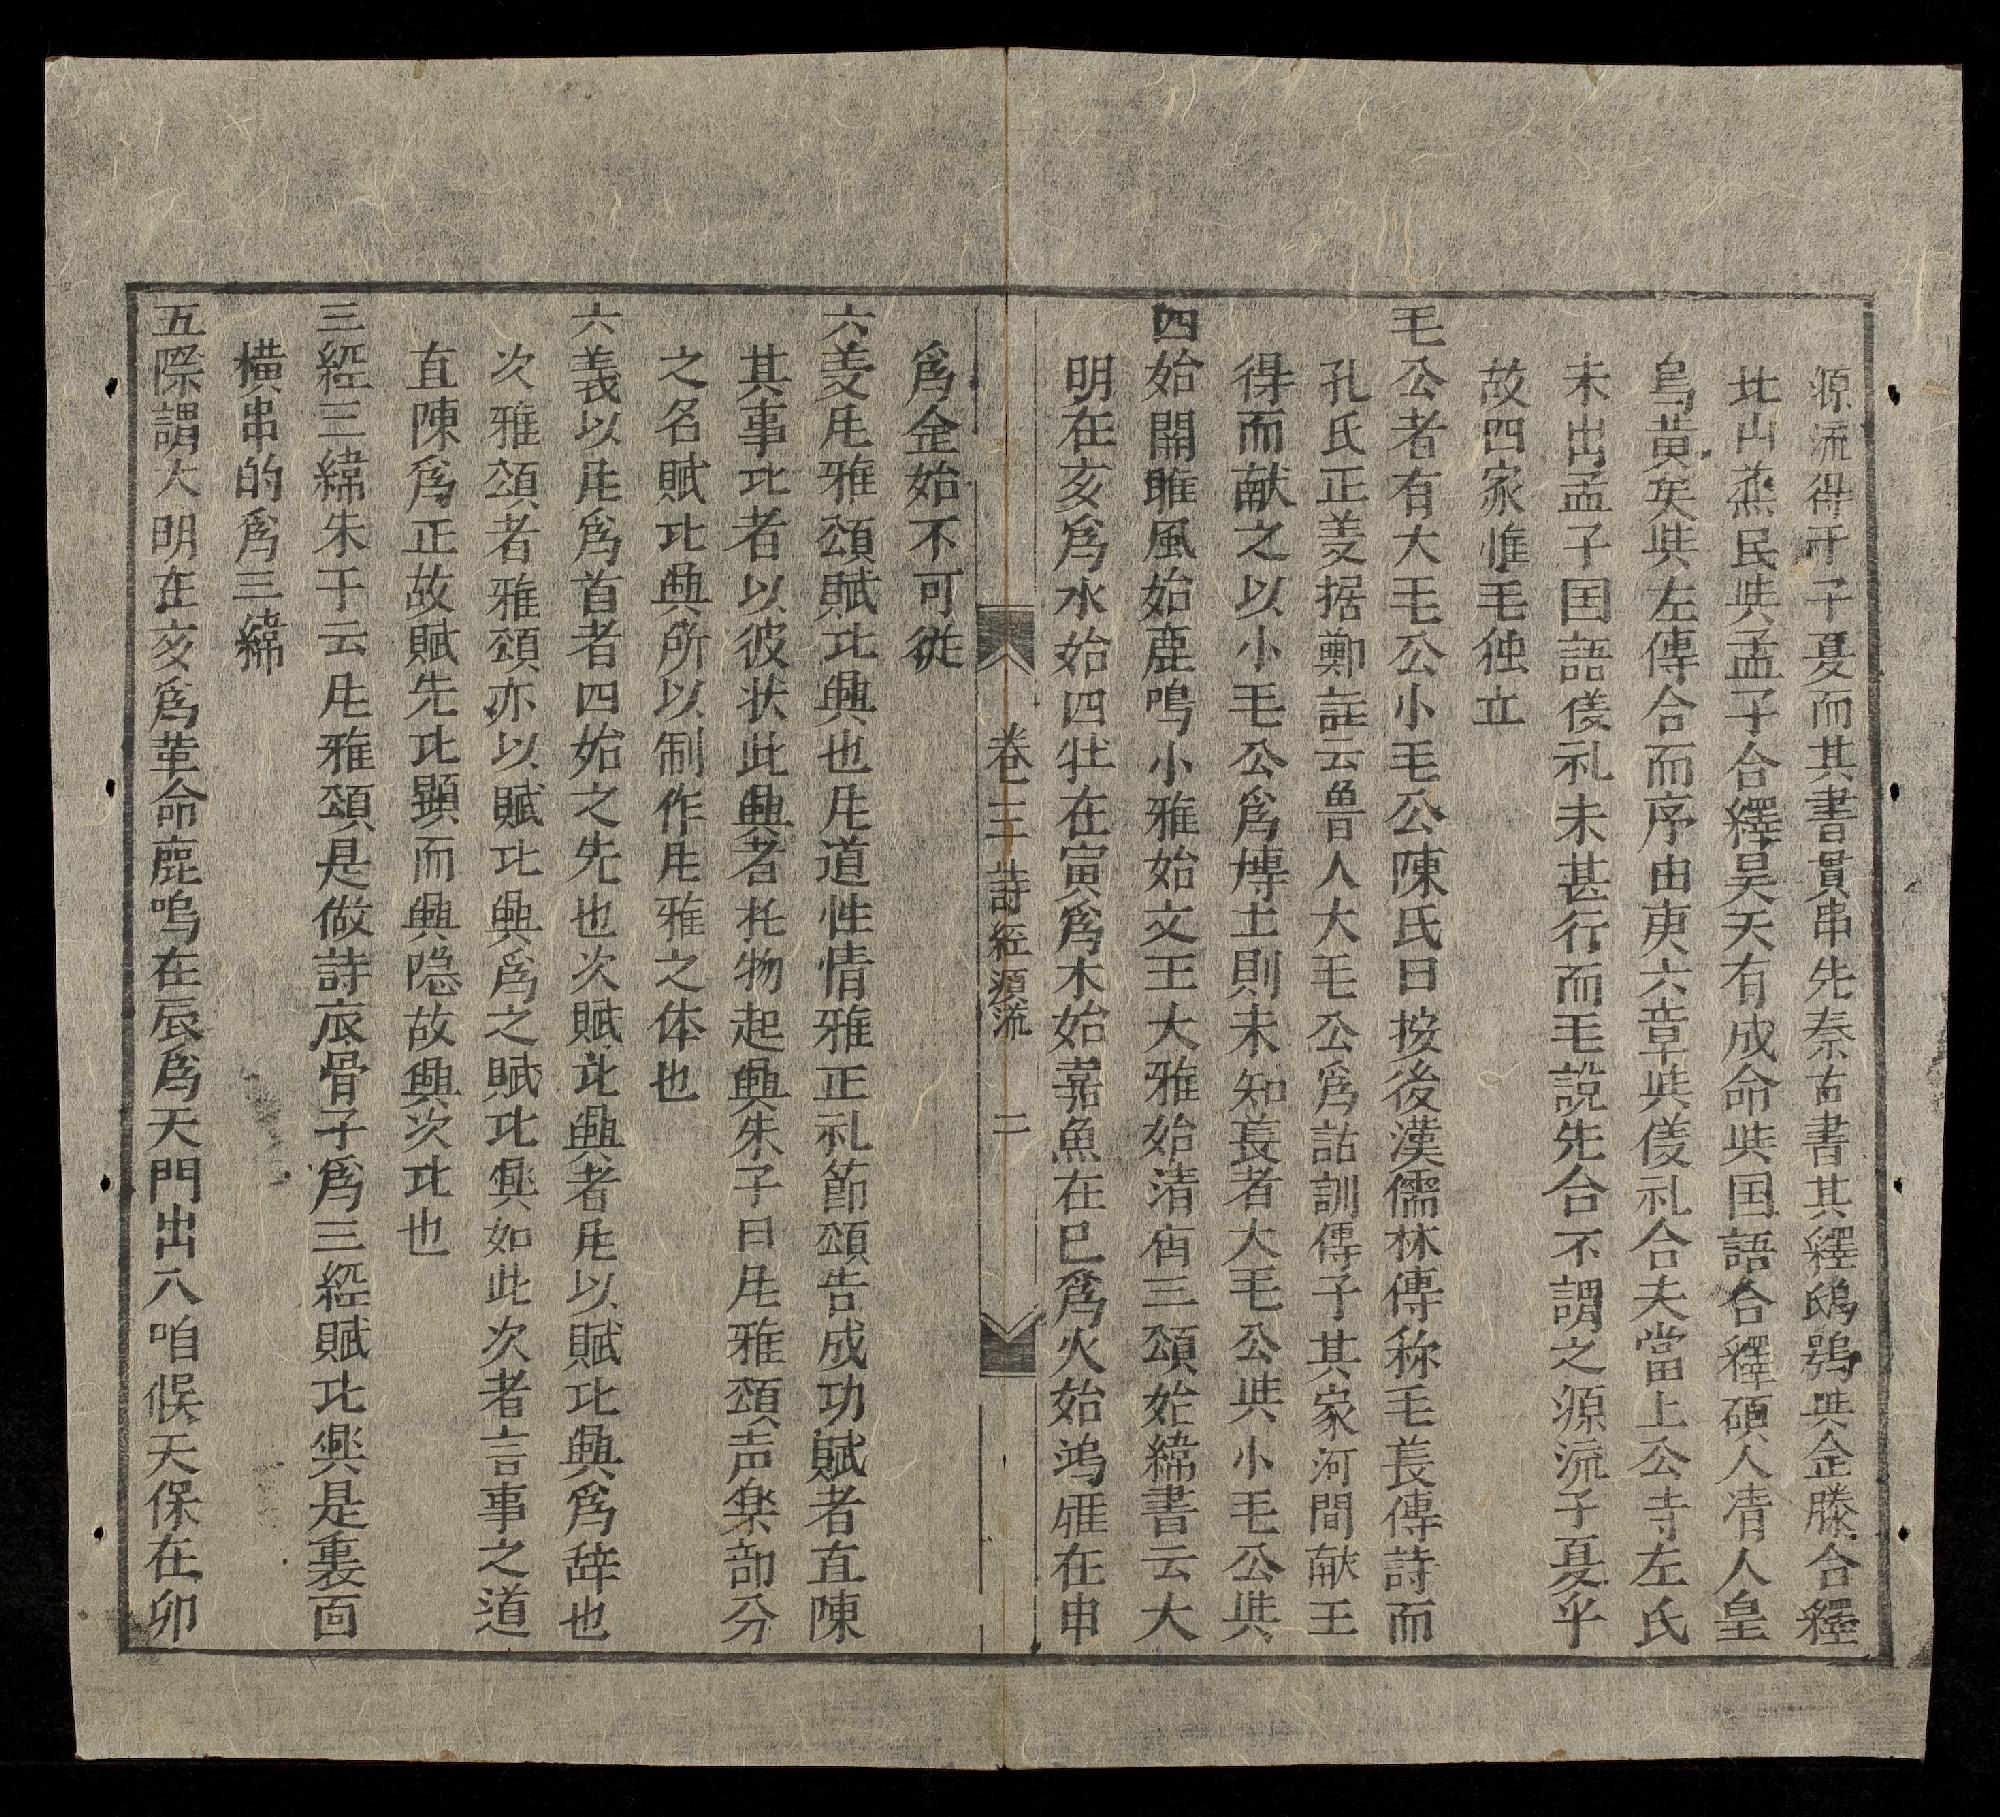 源流得于子夏而其書貫串先秦古書其釋鴟鴞與金滕合釋
北山烝民與孟子合釋昊天有成命與国語合釋碩人清人皇
鳥黃矣與左傳合而序由庚六章與儀礼合夫當上公寺左氏
未出孟子国語儀礼未甚行而毛說先合不謂之源流子夏乎
故四家惟毛独立
毛公者有大毛公小毛公陳氏曰按後漢儒林傳称毛萇傳詩而
孔氏正义据鄭註云魯人大毛公爲詁訓傳子其家河間献王
得而献之以小毛公爲博士則未知萇者大毛公與小毛公與
四始開雎風始鹿鳴小雅始文王大雅始清庙三頌始緯書云大
明在亥爲水始四牡在寅爲木始嘉魚在巳爲火始鴻雁在申
卷三 詩經源流 二
爲金始不可從
六义风雅頌賦比興也风道性情雅正礼節頌告成功賦者直陳
其事比者以彼状此興者托物起興朱子曰风雅頌声楽部分
之名賦比興所以制作风雅之体也
六義以风爲首者四始之先也次賦比興者风以賦比興爲辞也
次雅頌者雅頌亦以賦比興爲之賦比興如此次者言事之道
直陳爲正故賦先比顕而興隐故興次比也
三經三緯朱子云风雅頌是做詩底骨子爲三經賦比興是裏面
橫串的爲三緯
五際謂大明在亥爲革命鹿鳴在辰爲天門出入咱候天保在卯